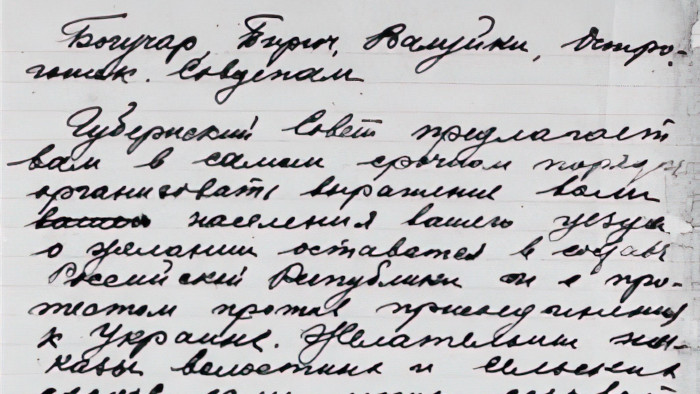 Богучар, Бирюч, Валуйки, Остро-
гожск. Совдепам
Губернский Совет предлагает
вам в самом срочном порядке
организовать выражение воли
населения вашего уезда
о желании оставатся в составе
Российской Республики и с про-
тестом против присоединения
к Украине. Желательны
казы волостных и сельских